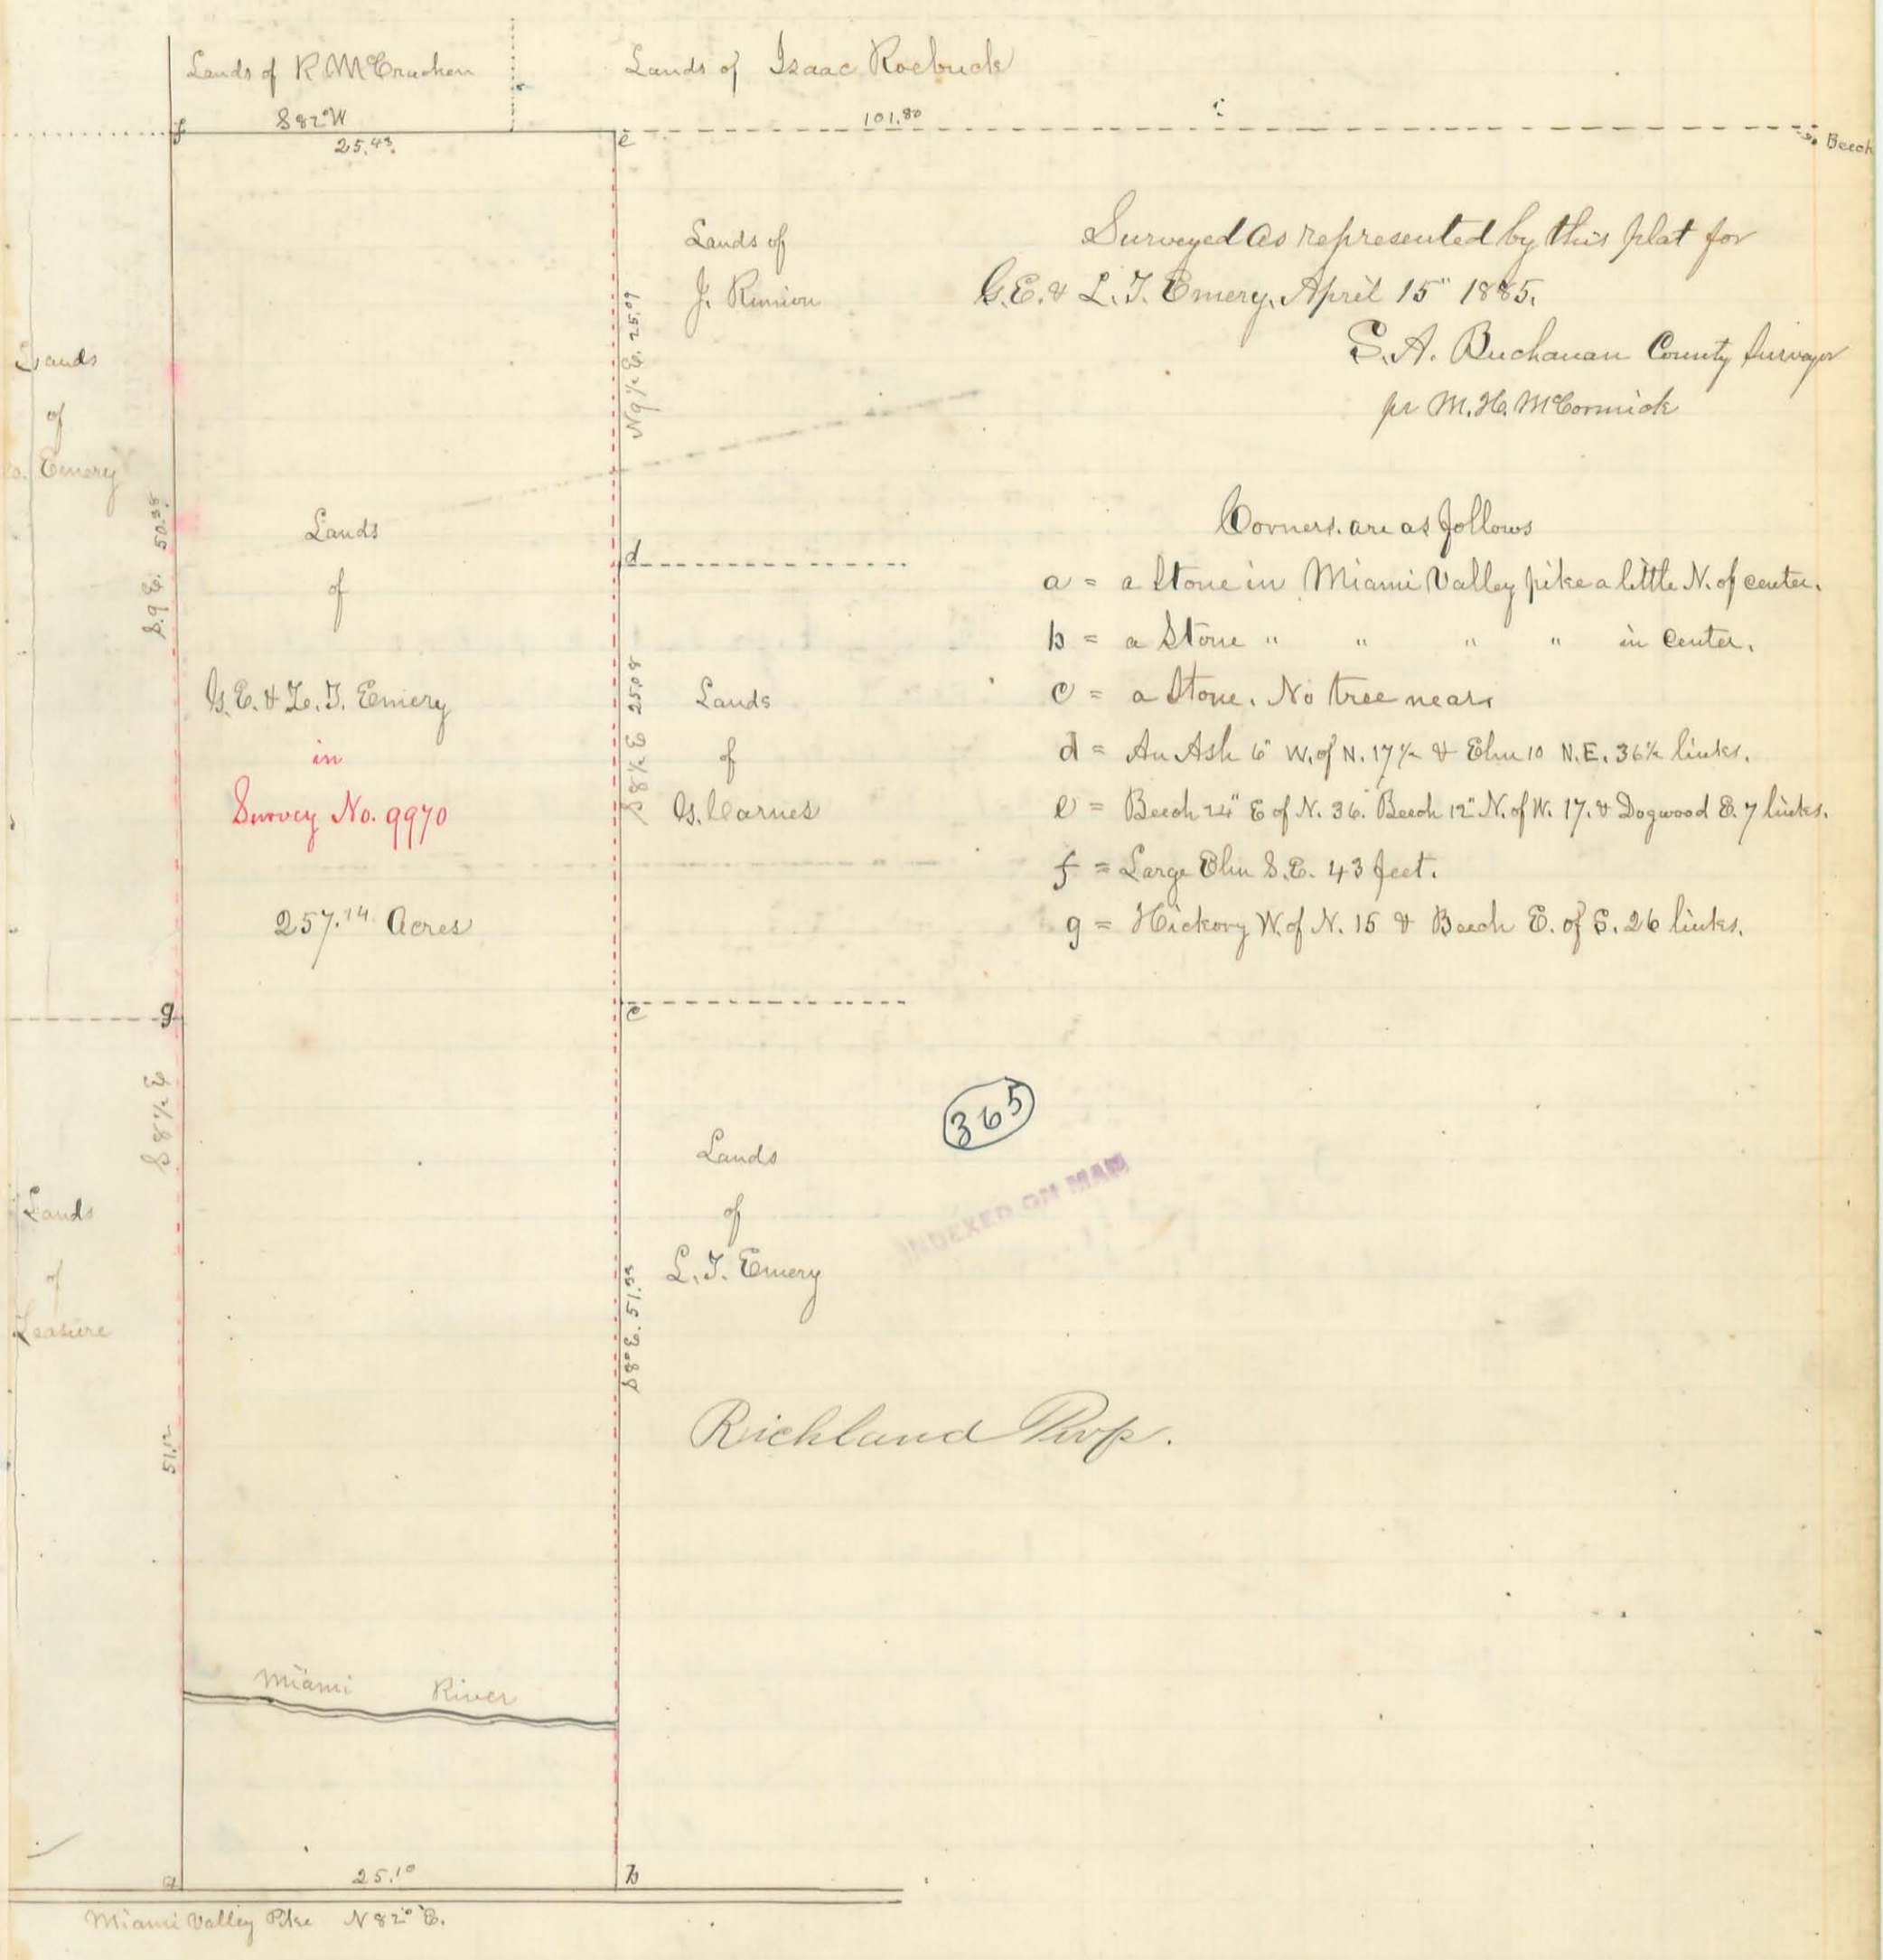 Lands of R McCrachen
Lands of Isaac Roebuck
S 82° W
25.43.
101.80
f
e
Beech
Lands of
J. Runion
N 9 1/2 E. 25.09
Surveyed as represented by this plat for
G. E. & L. T. Emery, April 15" 1885.
S. A. Buchanan County Surveyor
pr M. H. McCormick
Lands
of
Emery
S. 9 E. 50.58
Lands
of
G. E. & L. T. Emery
in
Survey No. 9970
257.14 Acres
d
S 8 1/2 E 25.08
Lands
of
G. Carnes
Corners are as follows
a = a Stone in Miami Valley pike a little N. of center.
b = a Stone " " " " in center.
c = a Stone. No tree near.
d = An Ash 6" W. of N. 17 1/2 & Elm 10 N.E. 36 1/2 links.
e = Beech 24" E of N. 36. Beech 12" N. of W. 17. & Dogwood E. 7 links.
f = Large Elm S.E. 43 feet.
g = Hickory W. of N. 15 & Beech E. of S. 26 links.
g
c
S 8 1/2 E
51.12
365
INDEXED ON MAP
Lands
of
L. T. Emery
S 8° E. 51.55
Lands
of
Leasure
Richland Twp.
Miami River
a
25.10
b
Miami Valley Pike N 82° E.